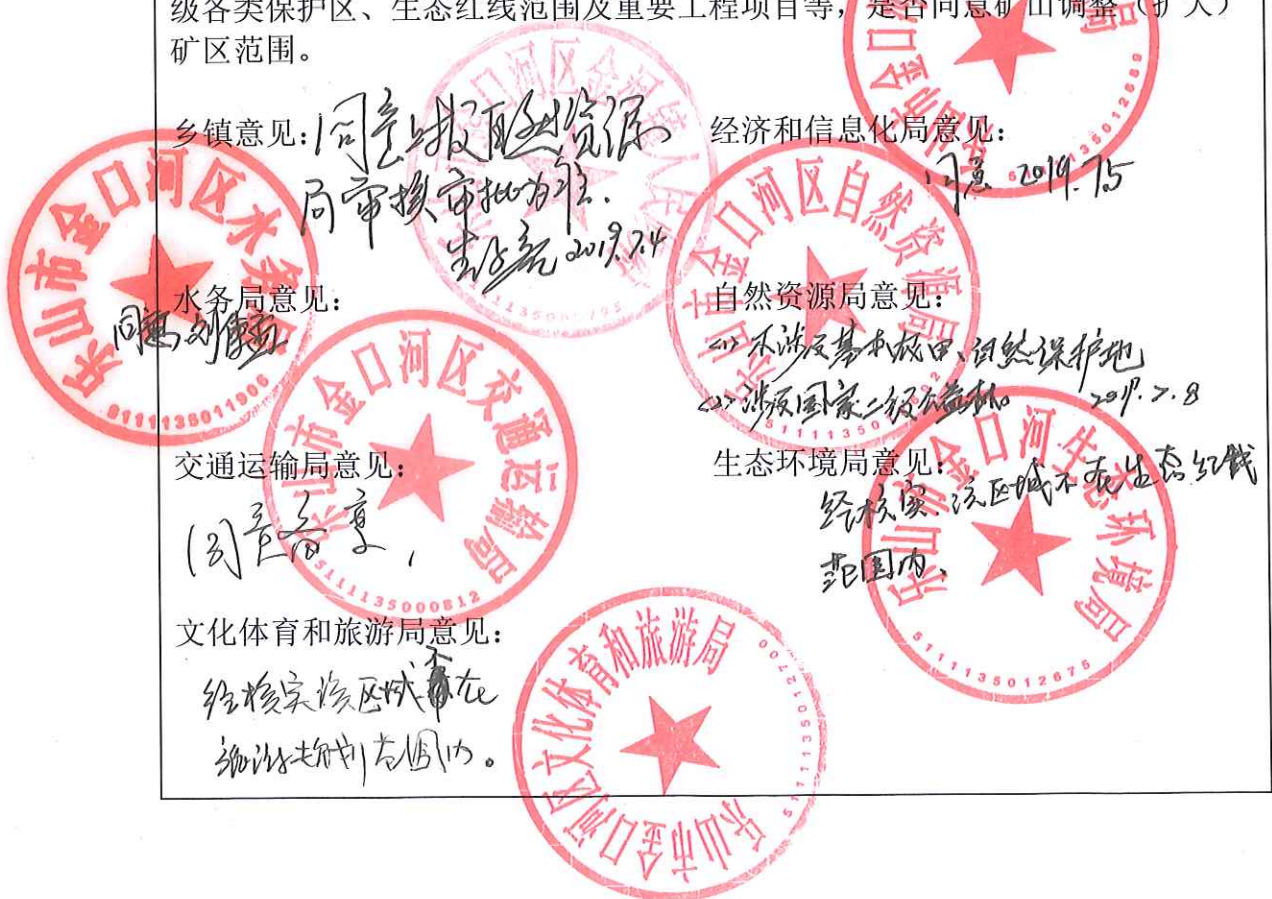 级各类保护区、生态红线范围及重要工程项目等，是否同意矿山调整（扩大）
矿区范围。
乡镇意见：同意上报自然资源
局审核审批为准.
2019.7.4
经济和信息化局意见：
同意 2019.7.5
水务局意见：
同意
自然资源局意见：
<1> 不涉及基本农田、自然保护地
<2> 涉及国家二级公益林。 2019.7.8
交通运输局意见：
同意
生态环境局意见：
经核实，该区域不在生态红线
范围内、
文化体育和旅游局意见：
经核实该区域不在
旅游规划范围内。
乐山市金口河区水务局
5111135011906
乐山市金口河区自然资源局
乐山市金口河区交通运输局
5111135000812
乐山市金口河生态环境局
5111135012675
乐山市金口河区文化体育和旅游局
5111135012700